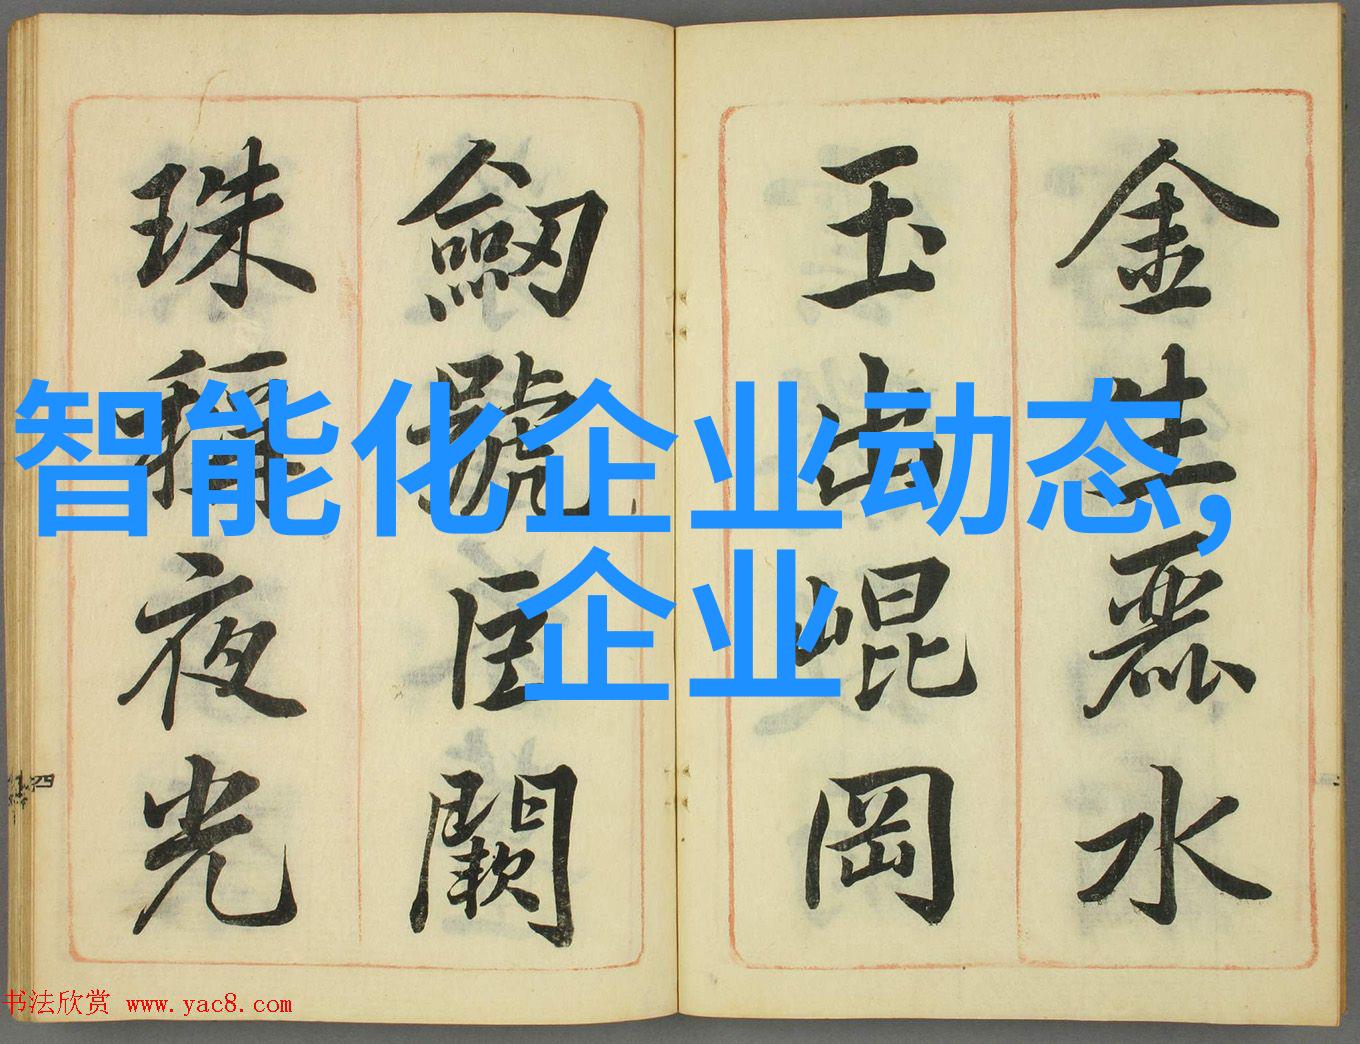 金生麗水
玉出崐岡
劒號巨闕
珠稱夜光
智能化企业动态,
企业
书法欣赏 www.yac8.com